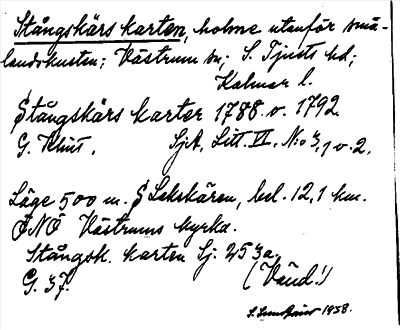 Stångskärs karten, holme utanför små-
landskusten; Västrum sn; S. Tjusts hd;
Kalmar l.
Stångskärs karter 1788. o. 1792.
G. Klint. SjA, Litt. VI. N:o 3, 1 o. 2.
Läge 500 m. S Lekskären, bel. 12,1 km.
ONO Västrums kyrka.
Stångsk. karten Sj. 253a.
G. 37. (Vänd!)
1938.